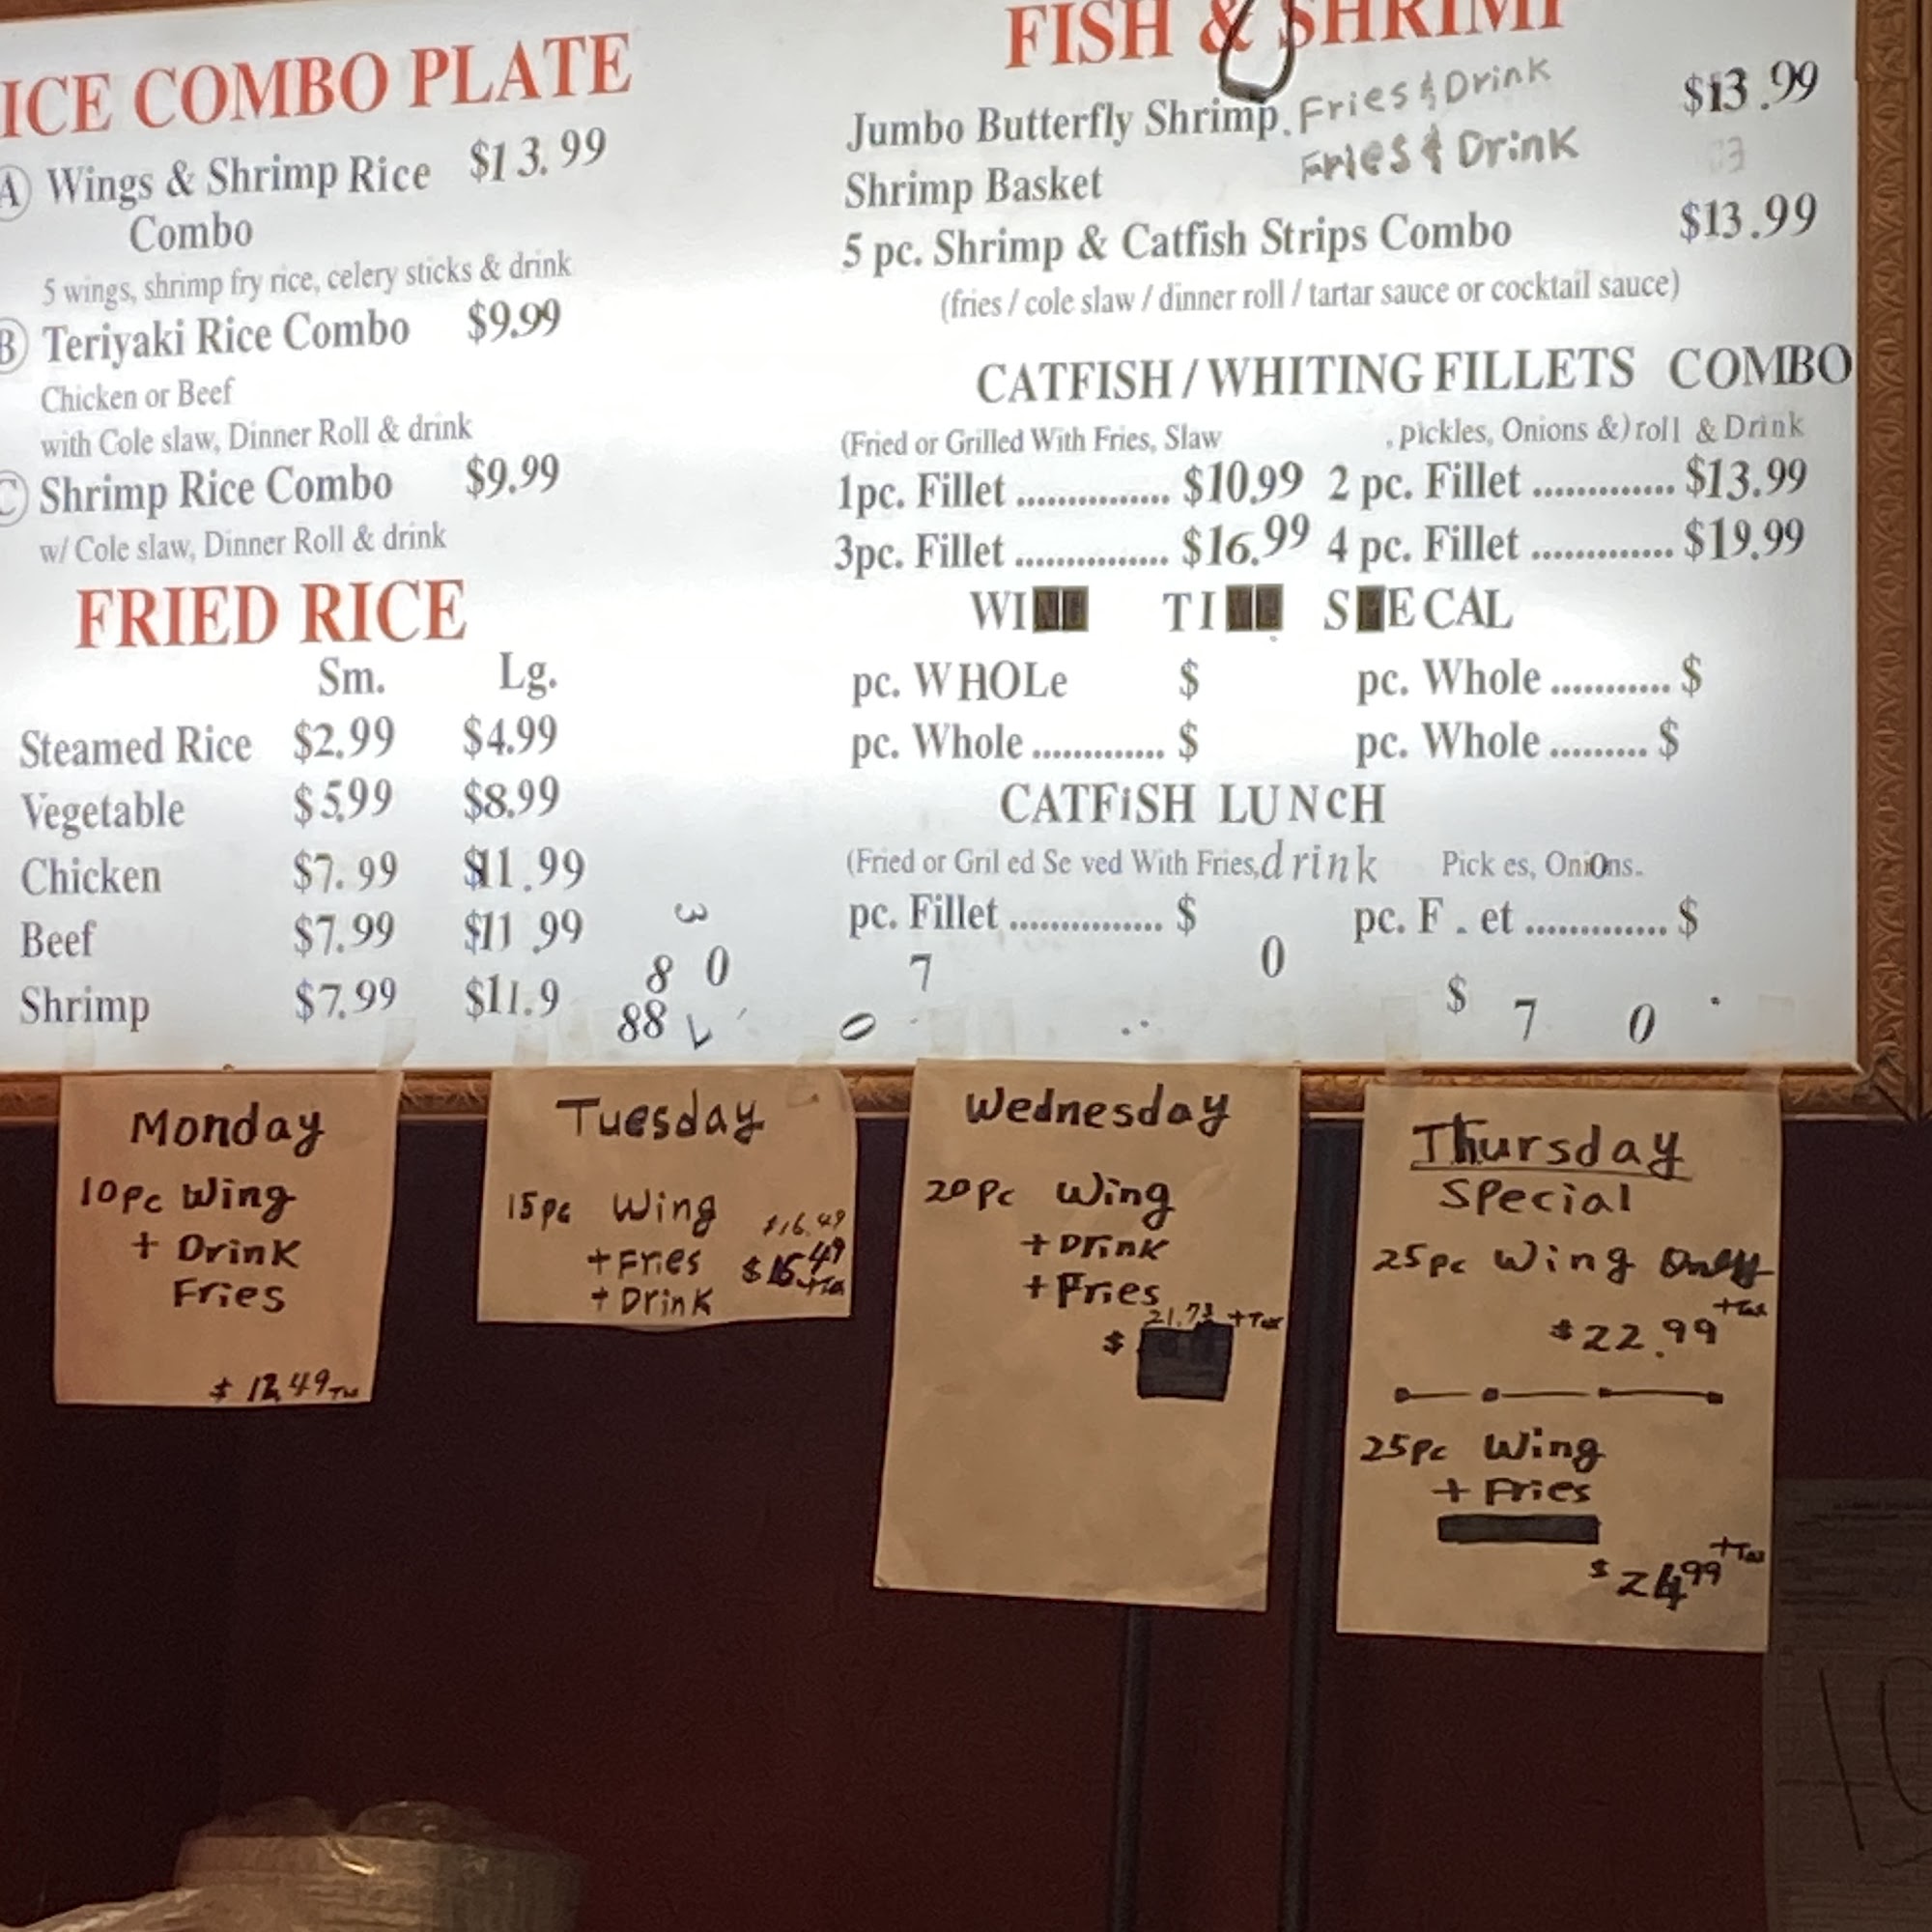 ICE COMBO PLATE
A Wings & Shrimp Rice $13.99
Combo
5 wings, shrimp fry rice, celery sticks & drink
B Teriyaki Rice Combo $9.99
Chicken or Beef
with Cole slaw, Dinner Roll & drink
C Shrimp Rice Combo $9.99
w/ Cole slaw, Dinner Roll & drink
FRIED RICE
Sm. Lg.
Steamed Rice $2.99 $4.99
Vegetable $5.99 $8.99
Chicken $7.99 $11.99
Beef $7.99 $11 99
Shrimp $7.99 $11.9
3
8 0
88 7
FISH & SHRIMP
Jumbo Butterfly Shrimp. Fries & Drink $13.99
Shrimp Basket Fries & Drink
5 pc. Shrimp & Catfish Strips Combo $13.99
(fries / cole slaw / dinner roll / tartar sauce or cocktail sauce)
CATFISH / WHITING FILLETS COMBO
(Fried or Grilled With Fries, Slaw , pickles, Onions &) roll & Drink
1pc. Fillet ............... $10.99 2 pc. Fillet ............. $13.99
3pc. Fillet ............... $16.99 4 pc. Fillet ............. $19.99
WI TI S E CAL
pc. WHOLe $ pc. Whole ........... $
pc. Whole ............. $ pc. Whole ......... $
CATFiSH LUNcH
(Fried or Gril ed Se ved With Fries, drink Pick es, Onions.
pc. Fillet ............... $ pc. F . et ............. $
7 0
0 $ 7 0
Monday
10pc Wing
+ Drink
Fries
$ 12.49 Tax
Tuesday
15pc Wing $16.49
+ Fries $16.49
+ Drink +Tax
Wednesday
20pc Wing
+ Drink
+ Fries
21.73 +Tax
$
Thursday
Special
25pc Wing Only
+Tax
$22.99
25pc Wing
+ Fries
+Tax
$24.99